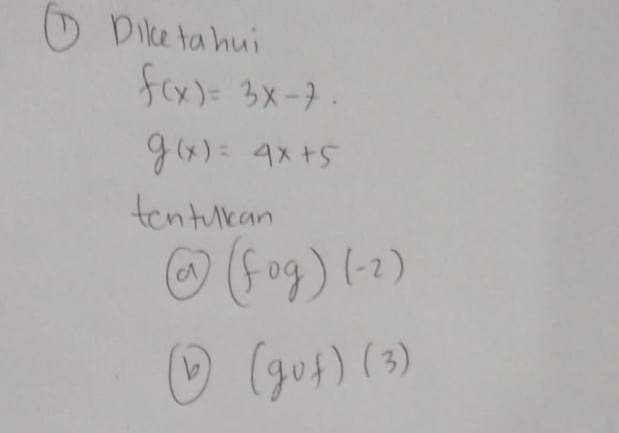 ① Diketahui
f(x) = 3x - 7.
g(x) = 4x + 5
tentukan
ⓐ (fog) (-2)
ⓑ (gof) (3)